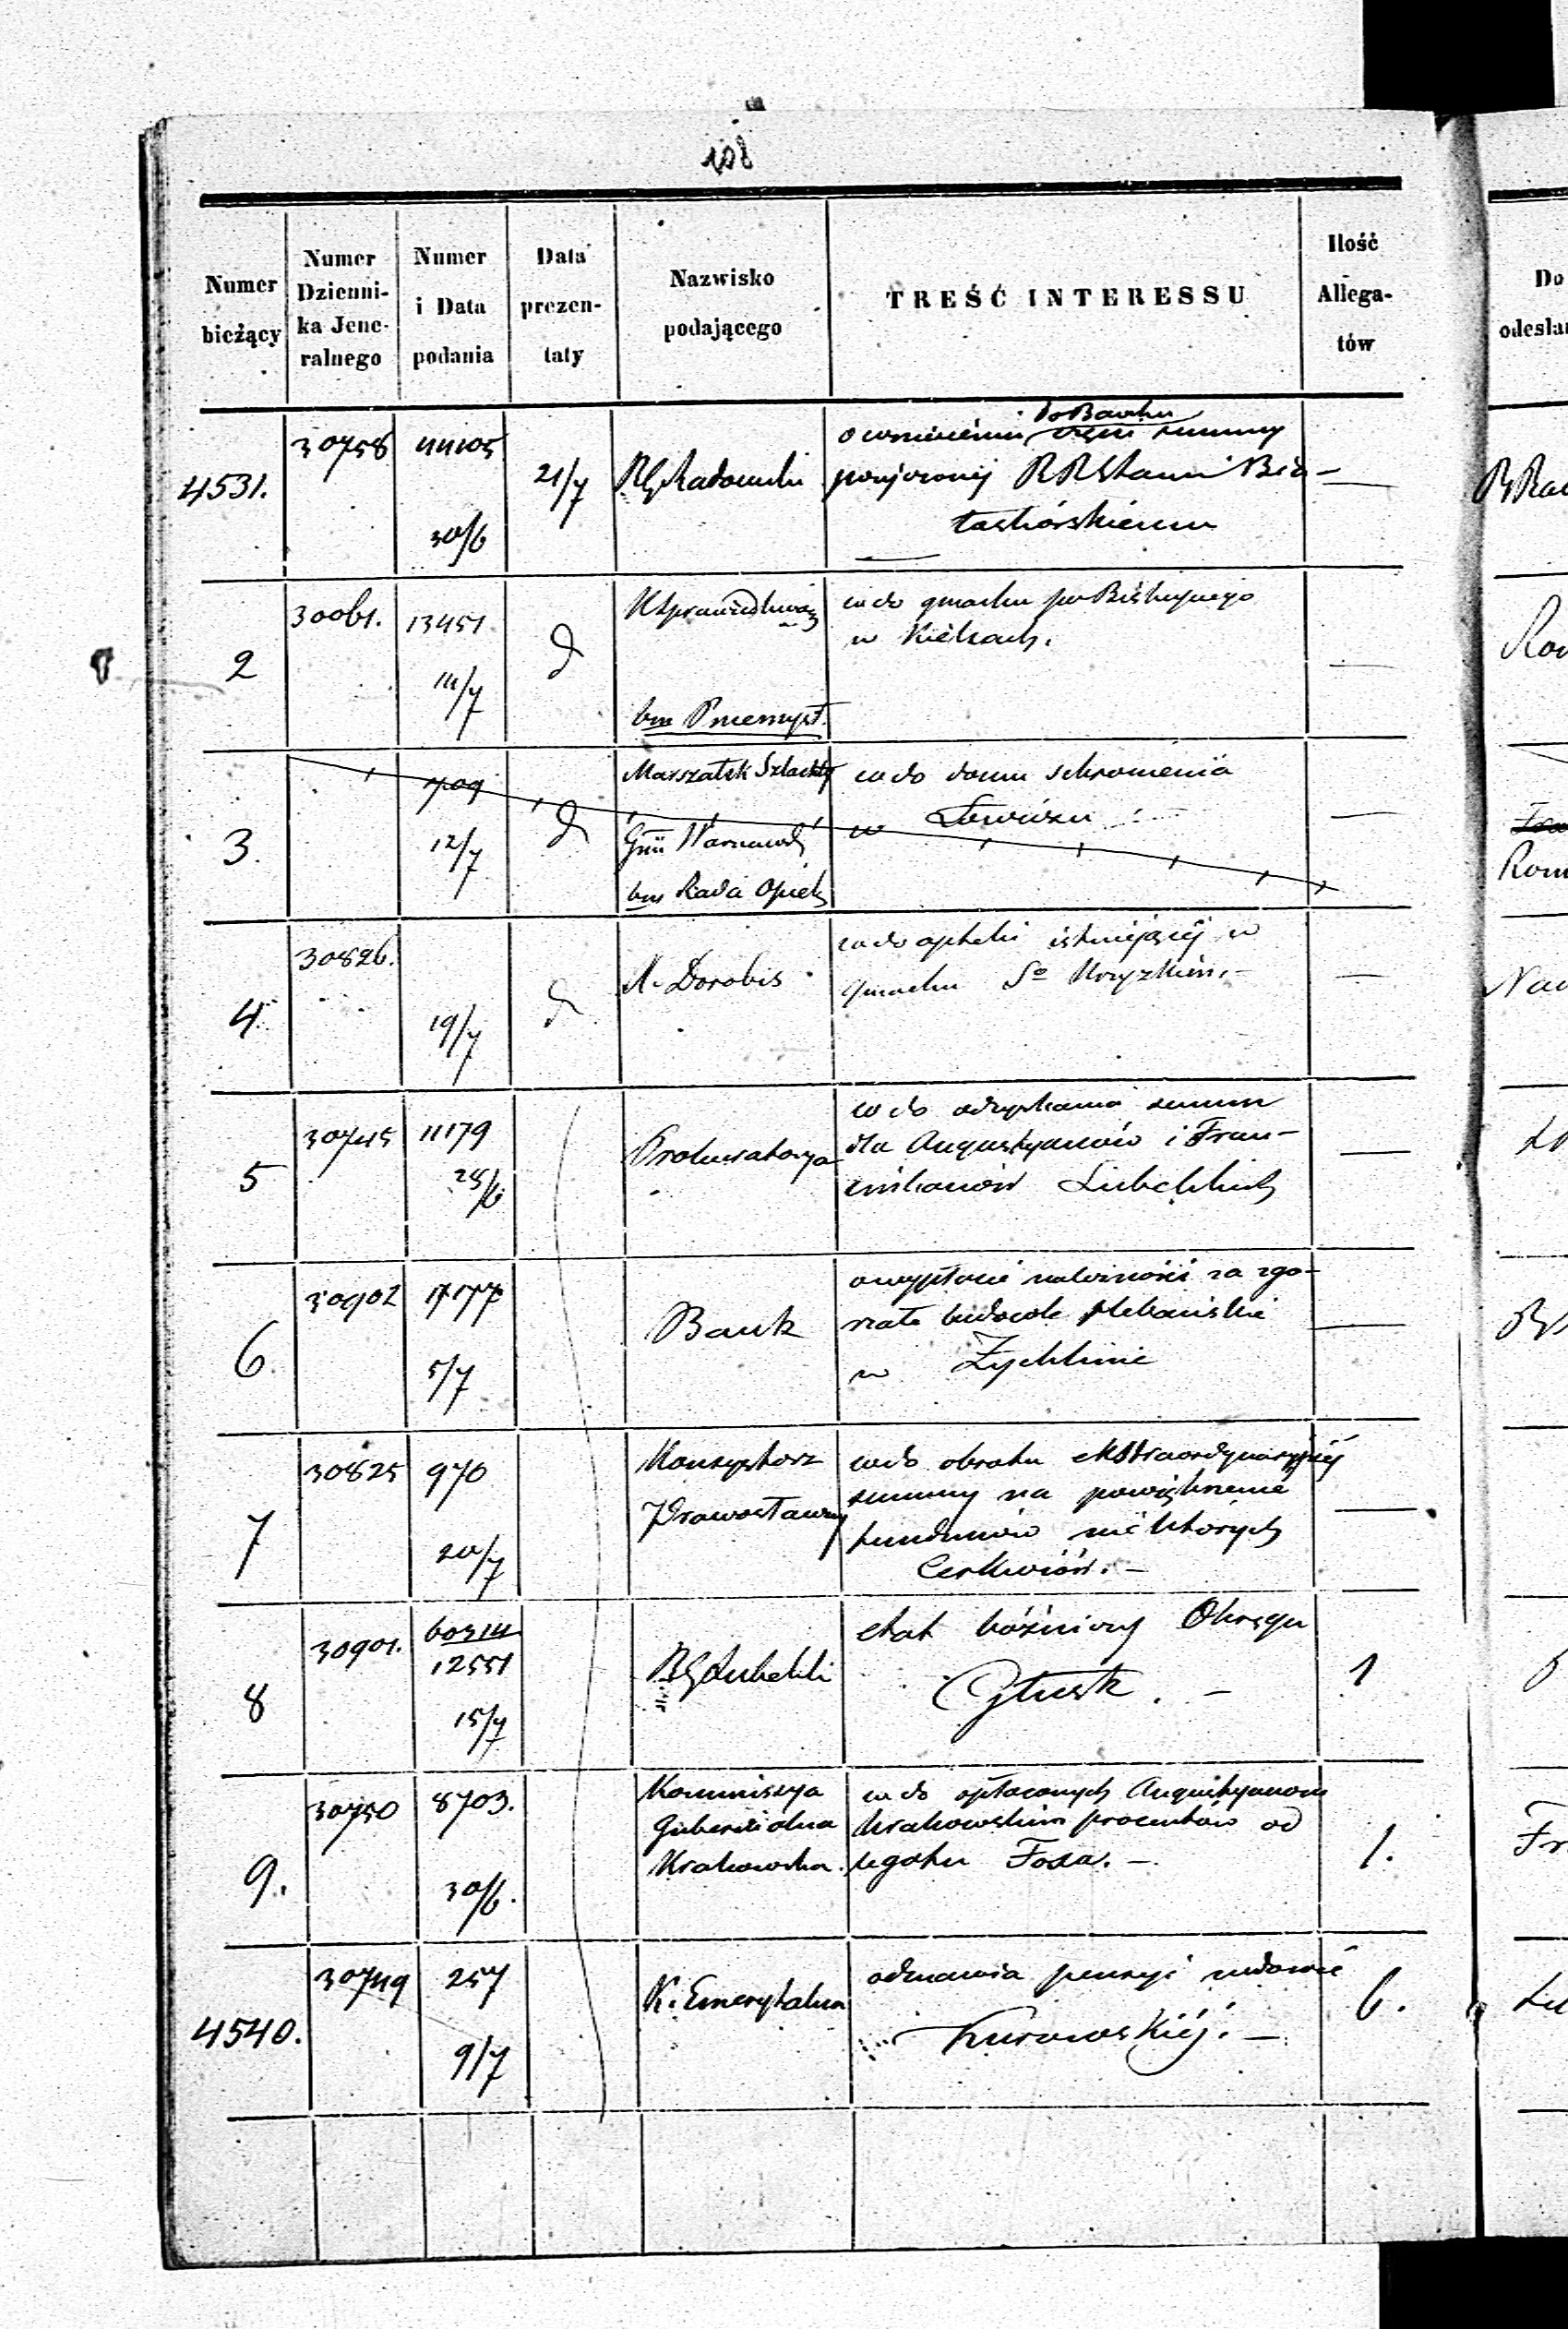 108
Numer bieżący
Numer Dzienni- ka Jene- ralnego
Numer i Data podania
Data prezen- taty
Nazwisko podającego
TREŚĆ INTERESSU
Ilość Allega- tów
Do
4531.
30758
44105
30/6
21/7
RG Radomski
o wniesieniu do Banku części summy
—
tashórskiemu
2
30061.
13451
14/7
K Sprawiedliwoś
bm Przemysł.
co do gmachu po Biskupiego
w Kielcach.
—
3.
709
12/7
Marszałek Szlachty
Gnii Warszawsk
bm Rada Opiek
co do domu schronienia
w Łowiczu
—
4.
30826.
19/7
N. Dorobis
co do apteki istniejącéj w
gmachu So Krzyzkim. –
—
5
30745
11179
28/6
Prokuratorya
co do odzyskania summ
dla Augustyanów i Fran-
ciszkanów Lubelskich
—
6.
30902
17177
5/7
Bank
o wypłacie należności za zgo-
rzałe budowle plebańskie
w Żychlinie
—
7
30825
970
20/7
Konsystorz
Prawosławny
co do obrotu ekstraordynaryjnéj
summy na powiększenie
funduszów niektórych
Cerkwiów. –
—
8
30901.
60314
12551
15/7
RG Lubelski
etat bóżniczy Okręgu
Głusk. –
1
9.
30750
8703.
30/6.
Kommissya
Gubernialna
Krakowska.
co do opłaconych Augustyanom
Krakowskim procentów od
legatu Foxa. –
1.
4540.
30749
257
9/7
K. Emerytalna
odmawia pensyi wdowie
Kurowskiéj. –
6.